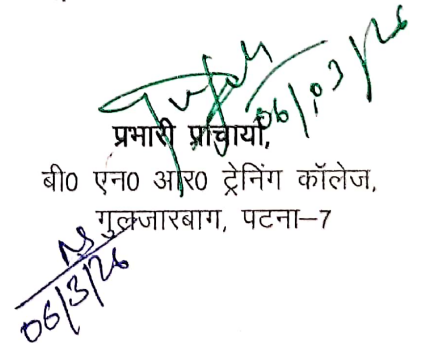 06/03/26
प्रभारी प्राचार्या,
बी0 एन0 आर0 ट्रेनिंग कॉलेज,
गुलजारबाग, पटना–7
06/3/26